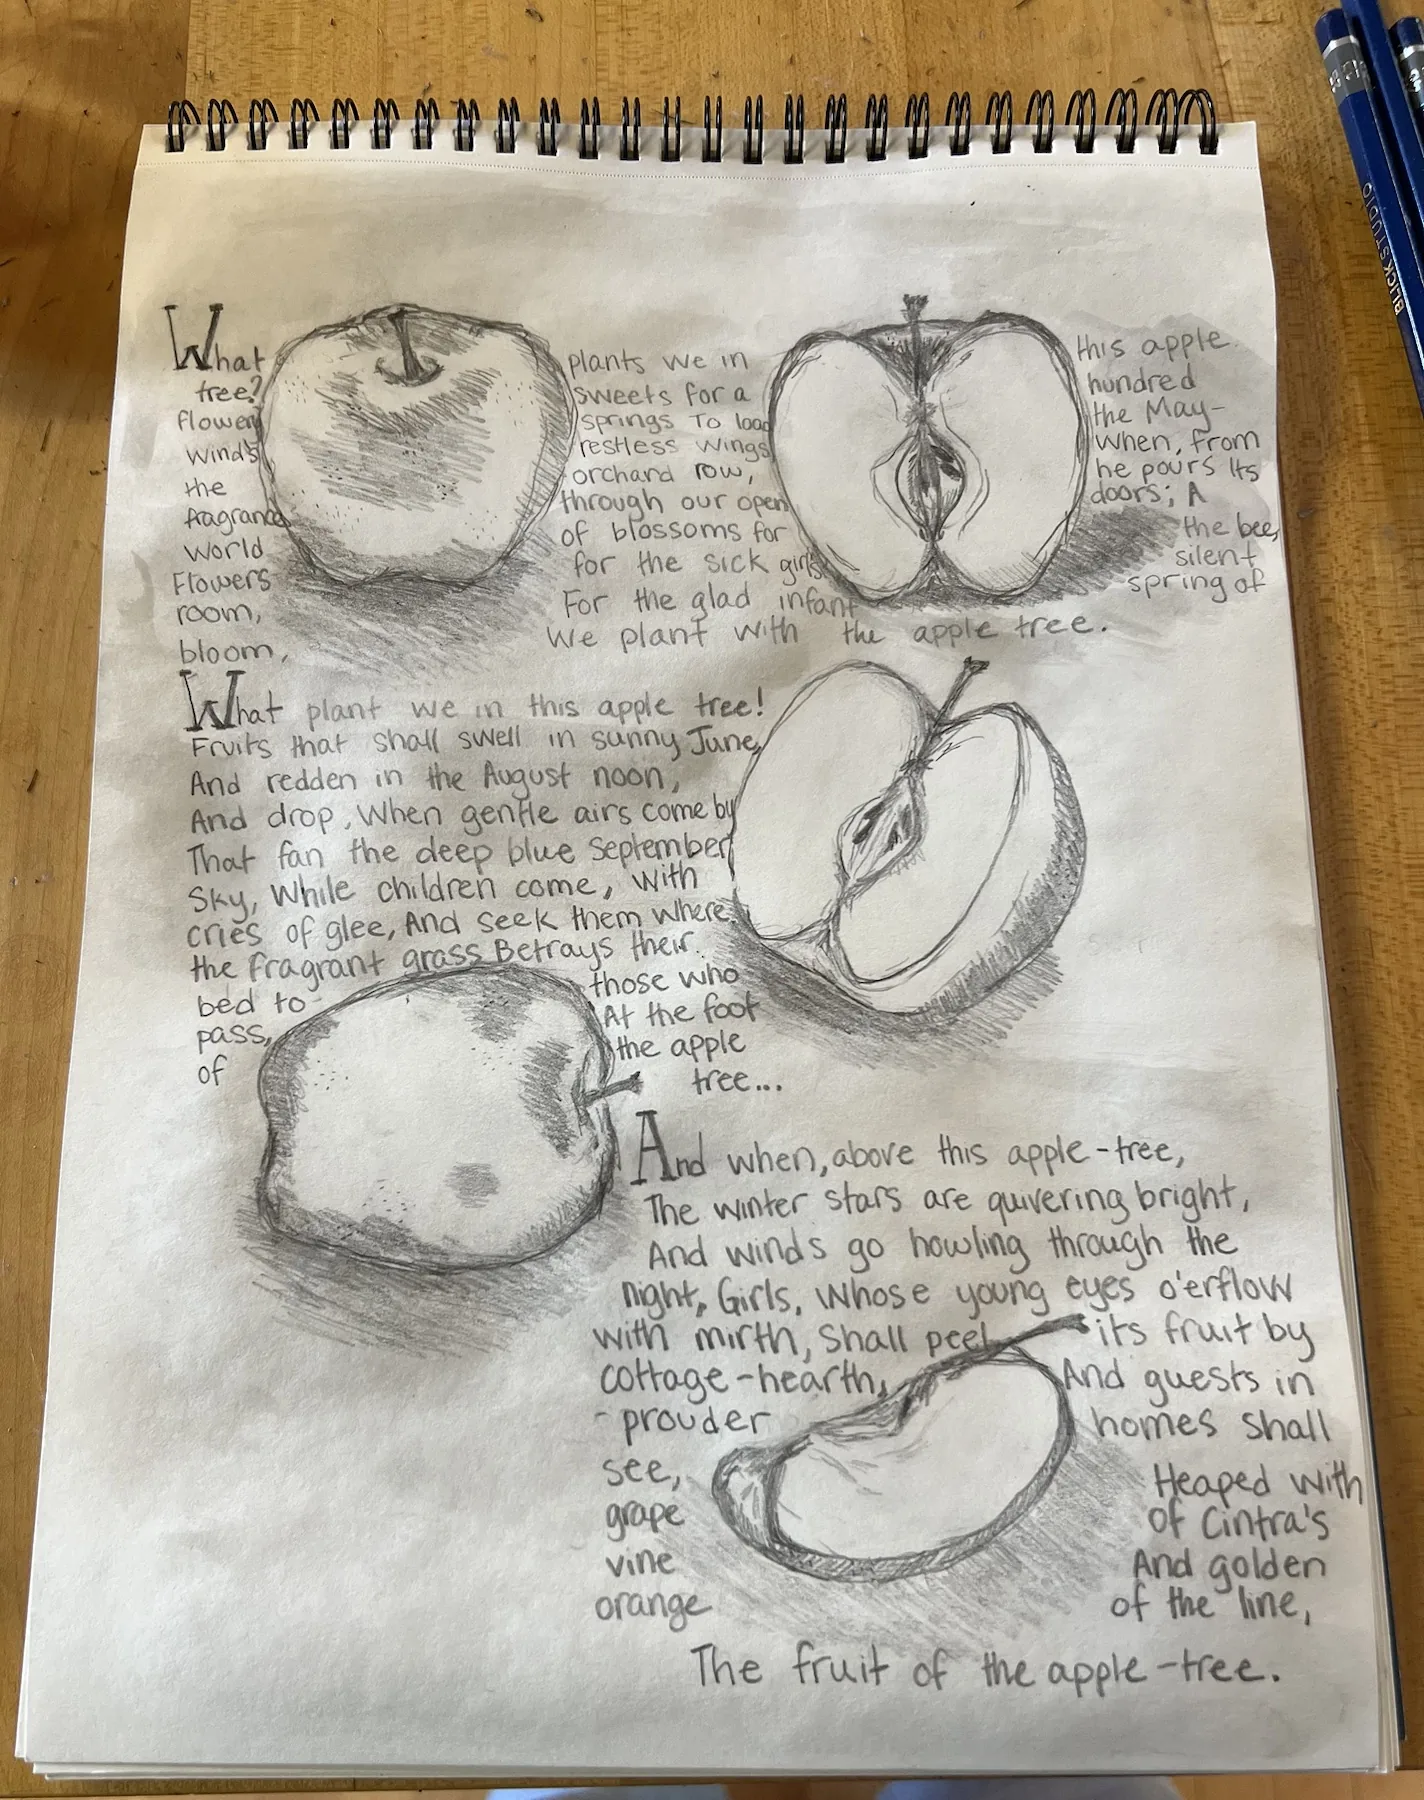 What plants we in this apple
tree? sweets for a hundred
flowery springs To load the May-
wind's restless wings When, from
the orchard row, he pours Its
fragrance through our open doors; A
World of blossoms for the bee,
Flowers for the sick girl's silent
room, For the glad infant spring of
bloom, We plant with the apple tree.
What plant we in this apple tree!
Fruits that shall swell in sunny June,
And redden in the August noon,
And drop, When gentle airs come by
That fan the deep blue September
Sky, While children come, With
cries of glee, And seek them Where
the fragrant grass Betrays their
bed to those who
pass, At the foot
of the apple
tree...
And when, above this apple-tree,
The winter stars are quivering bright,
And winds go howling through the
night, Girls, Whose young eyes o'erflow
with mirth, Shall peel its fruit by
cottage-hearth, And guests in
-prouder homes shall
see, Heaped with
grape of Cintra's
vine And golden
orange of the line,
The fruit of the apple-tree.
BLICK STUDIO